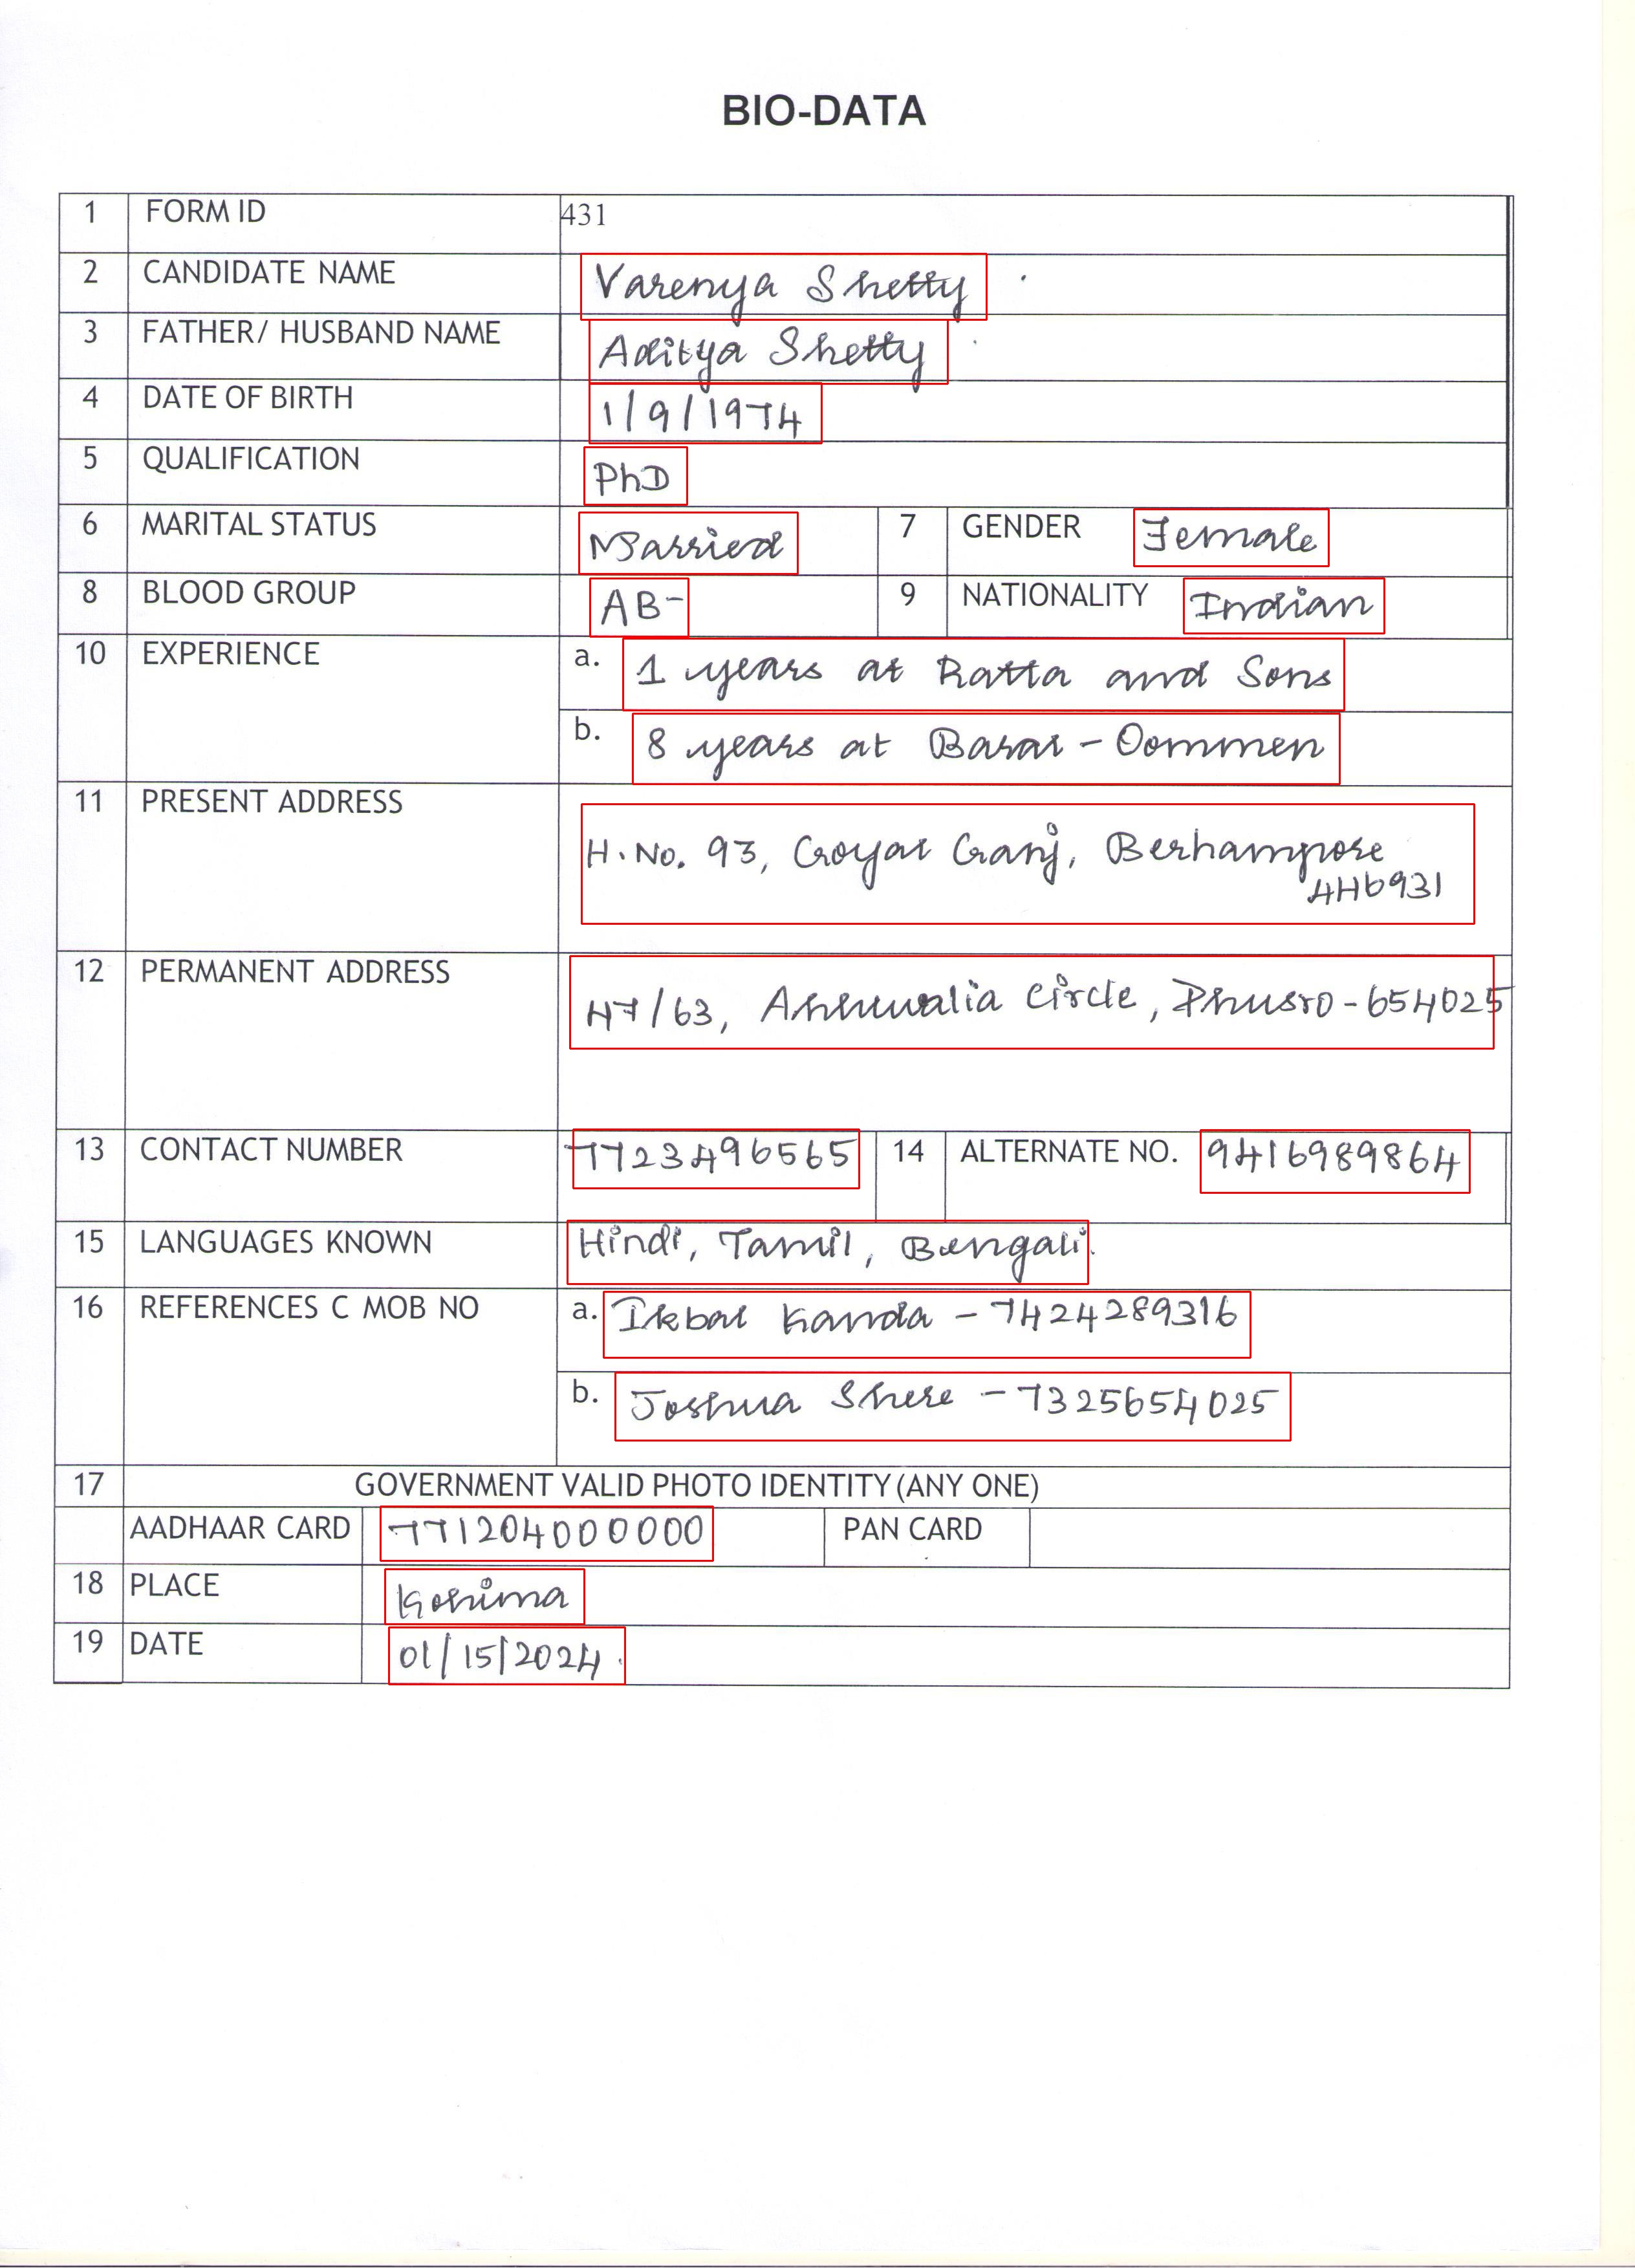 BIO-DATA
1 FORM ID 431
2 CANDIDATE NAME Varenya Shetty
3 FATHER/ HUSBAND NAME Aditya Shetty
4 DATE OF BIRTH 1/9/1974
5 QUALIFICATION PhD
6 MARITAL STATUS Married 7 GENDER Female
8 BLOOD GROUP AB- 9 NATIONALITY Indian
10 EXPERIENCE a. 1 years at Ratta and Sons
b. 8 years at Basar - Oommen
11 PRESENT ADDRESS H.No. 93, Goyal Ganj, Berhampore
446931
12 PERMANENT ADDRESS H7/63, Ahluwalia Circle, Phusro - 654025
13 CONTACT NUMBER 7723496565 14 ALTERNATE NO. 9416989864
15 LANGUAGES KNOWN Hindi, Tamil, Bengali.
16 REFERENCES C MOB NO a. Ikbal Kanda - 7424289316
b. Joshua Shere - 7325654025
17 GOVERNMENT VALID PHOTO IDENTITY (ANY ONE)
AADHAAR CARD 771204000000 PAN CARD
18 PLACE Kohima
19 DATE 01/15/2024.